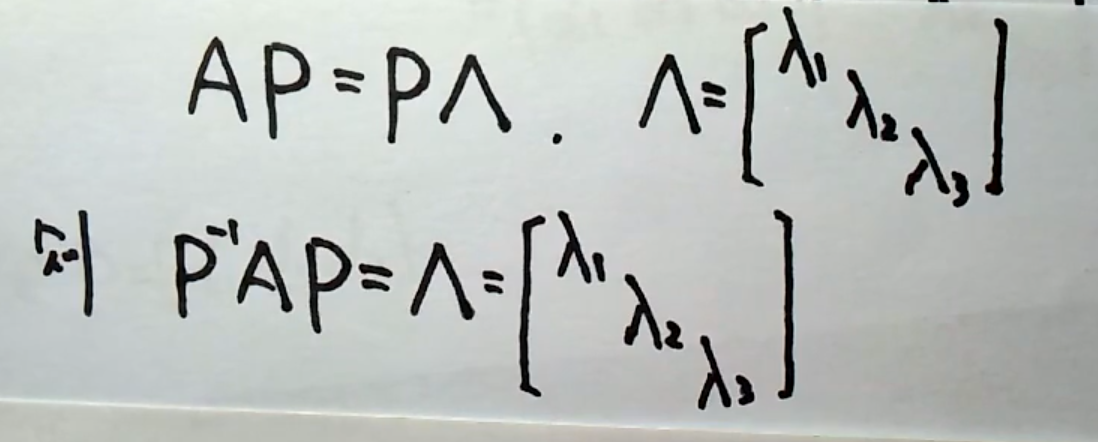 AP=PΛ. Λ=[λ₁ λ₂ λ₃]
则 P⁻¹AP=Λ=[λ₁ λ₂ λ₃]